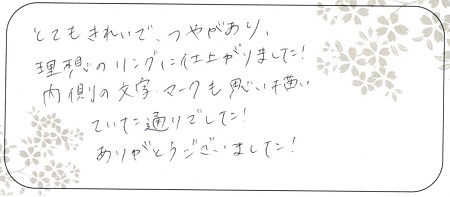 とてもきれいで、つやがあり、
理想のリングに仕上がりました!
内側の文字・マークも思い描い
ていた通りでした!
ありがとうございました!